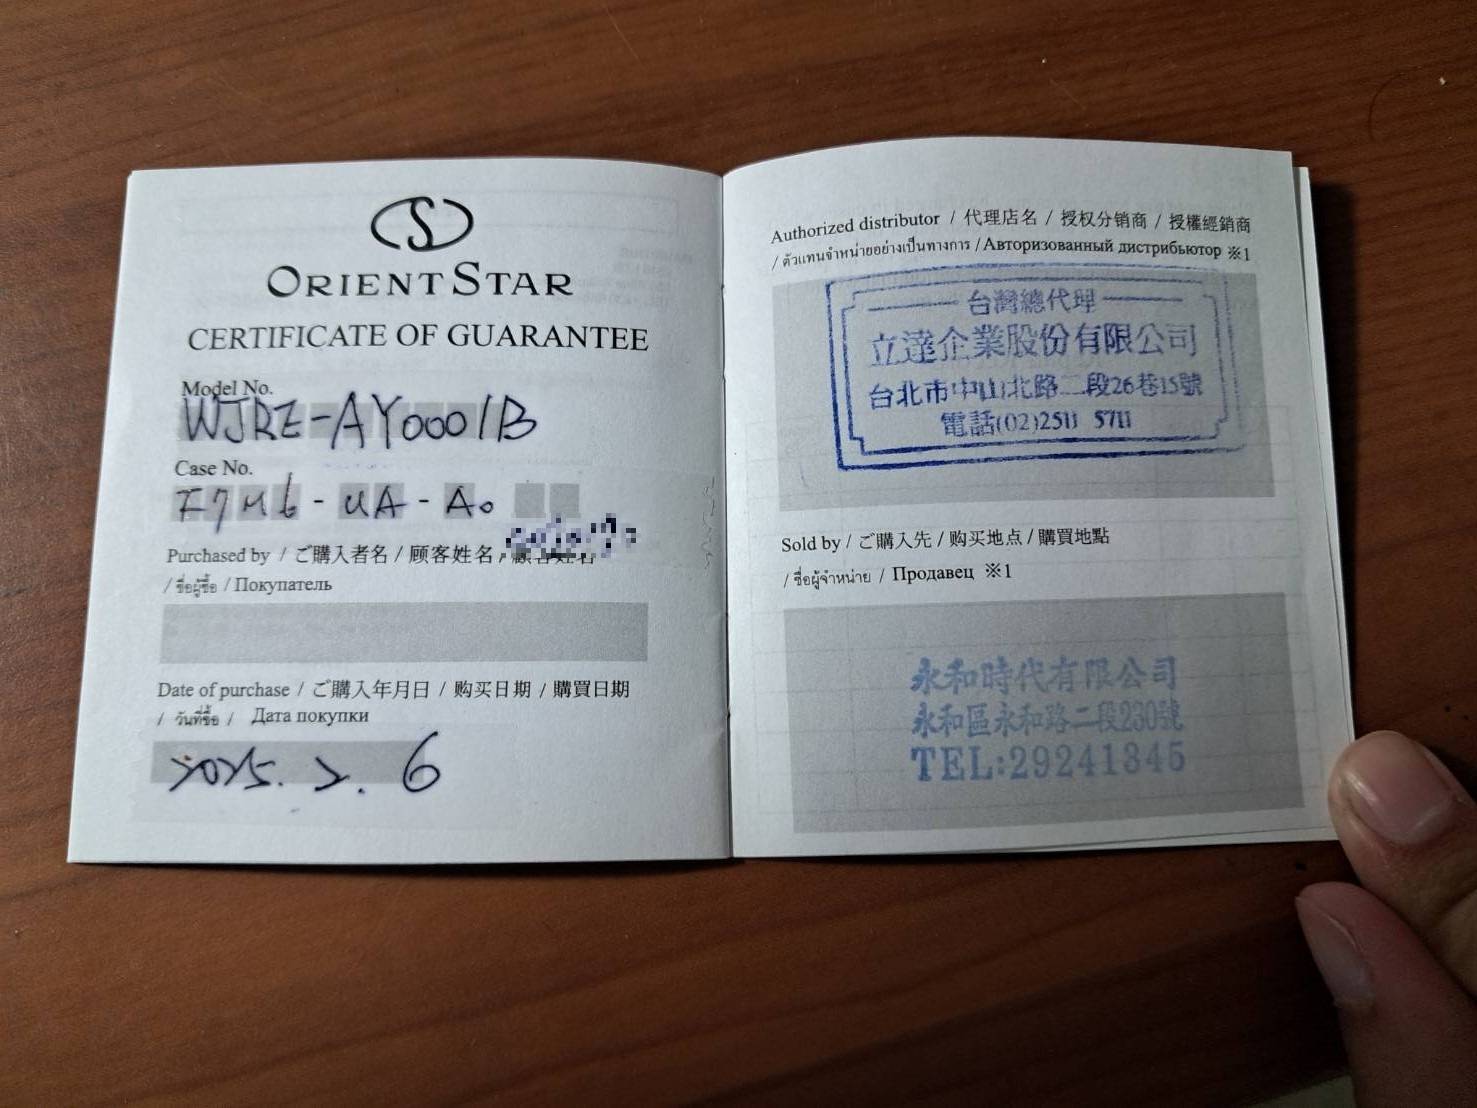 ORIENT STAR
CERTIFICATE OF GUARANTEE
Model No.
WJRE-AY0001B
Case No.
F7M6 - UA - A0
Purchased by / ご購入者名 / 顾客姓名 / 顧客姓名
/ ชื่อผู้ซื้อ / Покупатель
Date of purchase / ご購入年月日 / 购买日期 / 購買日期
/ วันที่ซื้อ / Дата покупки
2025. 2. 6
Authorized distributor / 代理店名 / 授权分销商 / 授權經銷商
/ ตัวแทนจำหน่ายอย่างเป็นทางการ / Авторизованный дистрибьютор ※1
台灣總代理
立達企業股份有限公司
台北市中山北路二段26巷15號
電話(02)2511 5711
Sold by / ご購入先 / 购买地点 / 購買地點
/ ชื่อผู้จำหน่าย / Продавец ※1
永和時代有限公司
永和區永和路二段230號
TEL:29241845